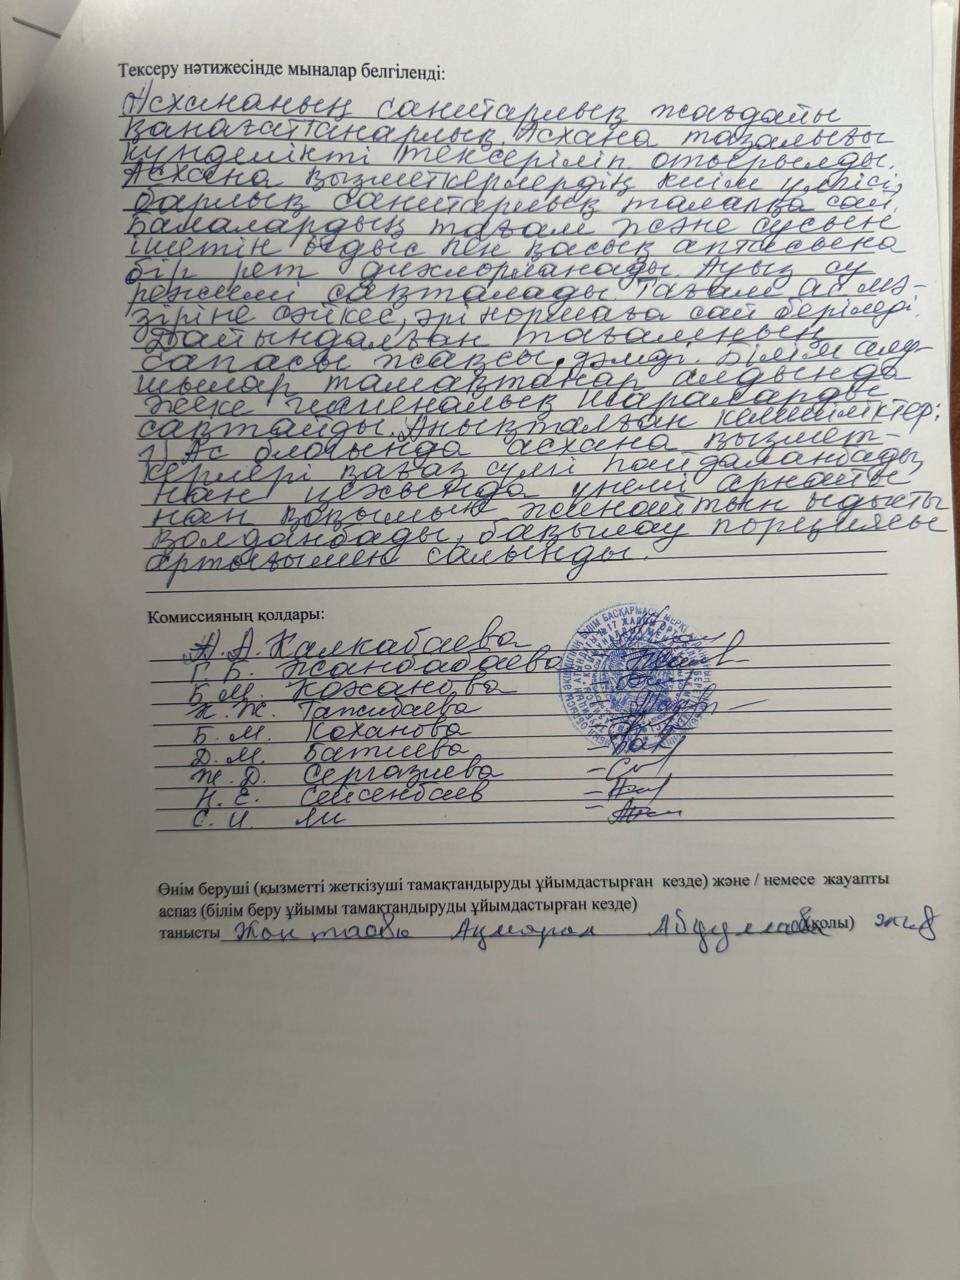 Тексеру нәтижесінде мыналар белгіленді:
Асхананың санитарлық жағдайы
қанағаттанарлық. Асхана тазалығы
күнделікті тексеріліп отырылды.
Асхана қызметкерлердің киім үлгісі,
барлық санитарлық талапқа сай.
Балалардың тағам және сусын
ішетін ыдыс пен қасық аптасына
бір рет дихлорланады. Ауыз су
режимі сақталады. Тағам ас мә-
зіріне сәйкес, әрі нормаға сай беріледі.
Дайындалған тағамның
сапасы жақсы, дәмді. Білім алу-
шылар тамақтанар алдында
жеке гигиеналық шараларды
сақтайды. Анықталған кемшіліктер:
1) Ас блогында асхана қызмет-
керлері қағаз сүлгі пайдаланбады,
нан цехында үнемі арнайы
нан қоқымын жинайтын ыдысты
қолданбады, бақылау порциясы
артығымен салынды.
Комиссияның қолдары:
А.А. Калкабаева
Г.Б. Жанбабаева
Б.М. Кожанова
К.Ж. Тажибаева
Б.М. Коханова
Д.М. Батиева
Ж.Д. Сергазиева
Н.Е. Сейсенбаев
С.И. Ли
Өнім беруші (қызметті жеткізуші тамақтандыруды ұйымдастырған кезде) және / немесе жауапты
аспаз (білім беру ұйымы тамақтандыруды ұйымдастырған кезде)
танысты Абдуллаева (қолы)